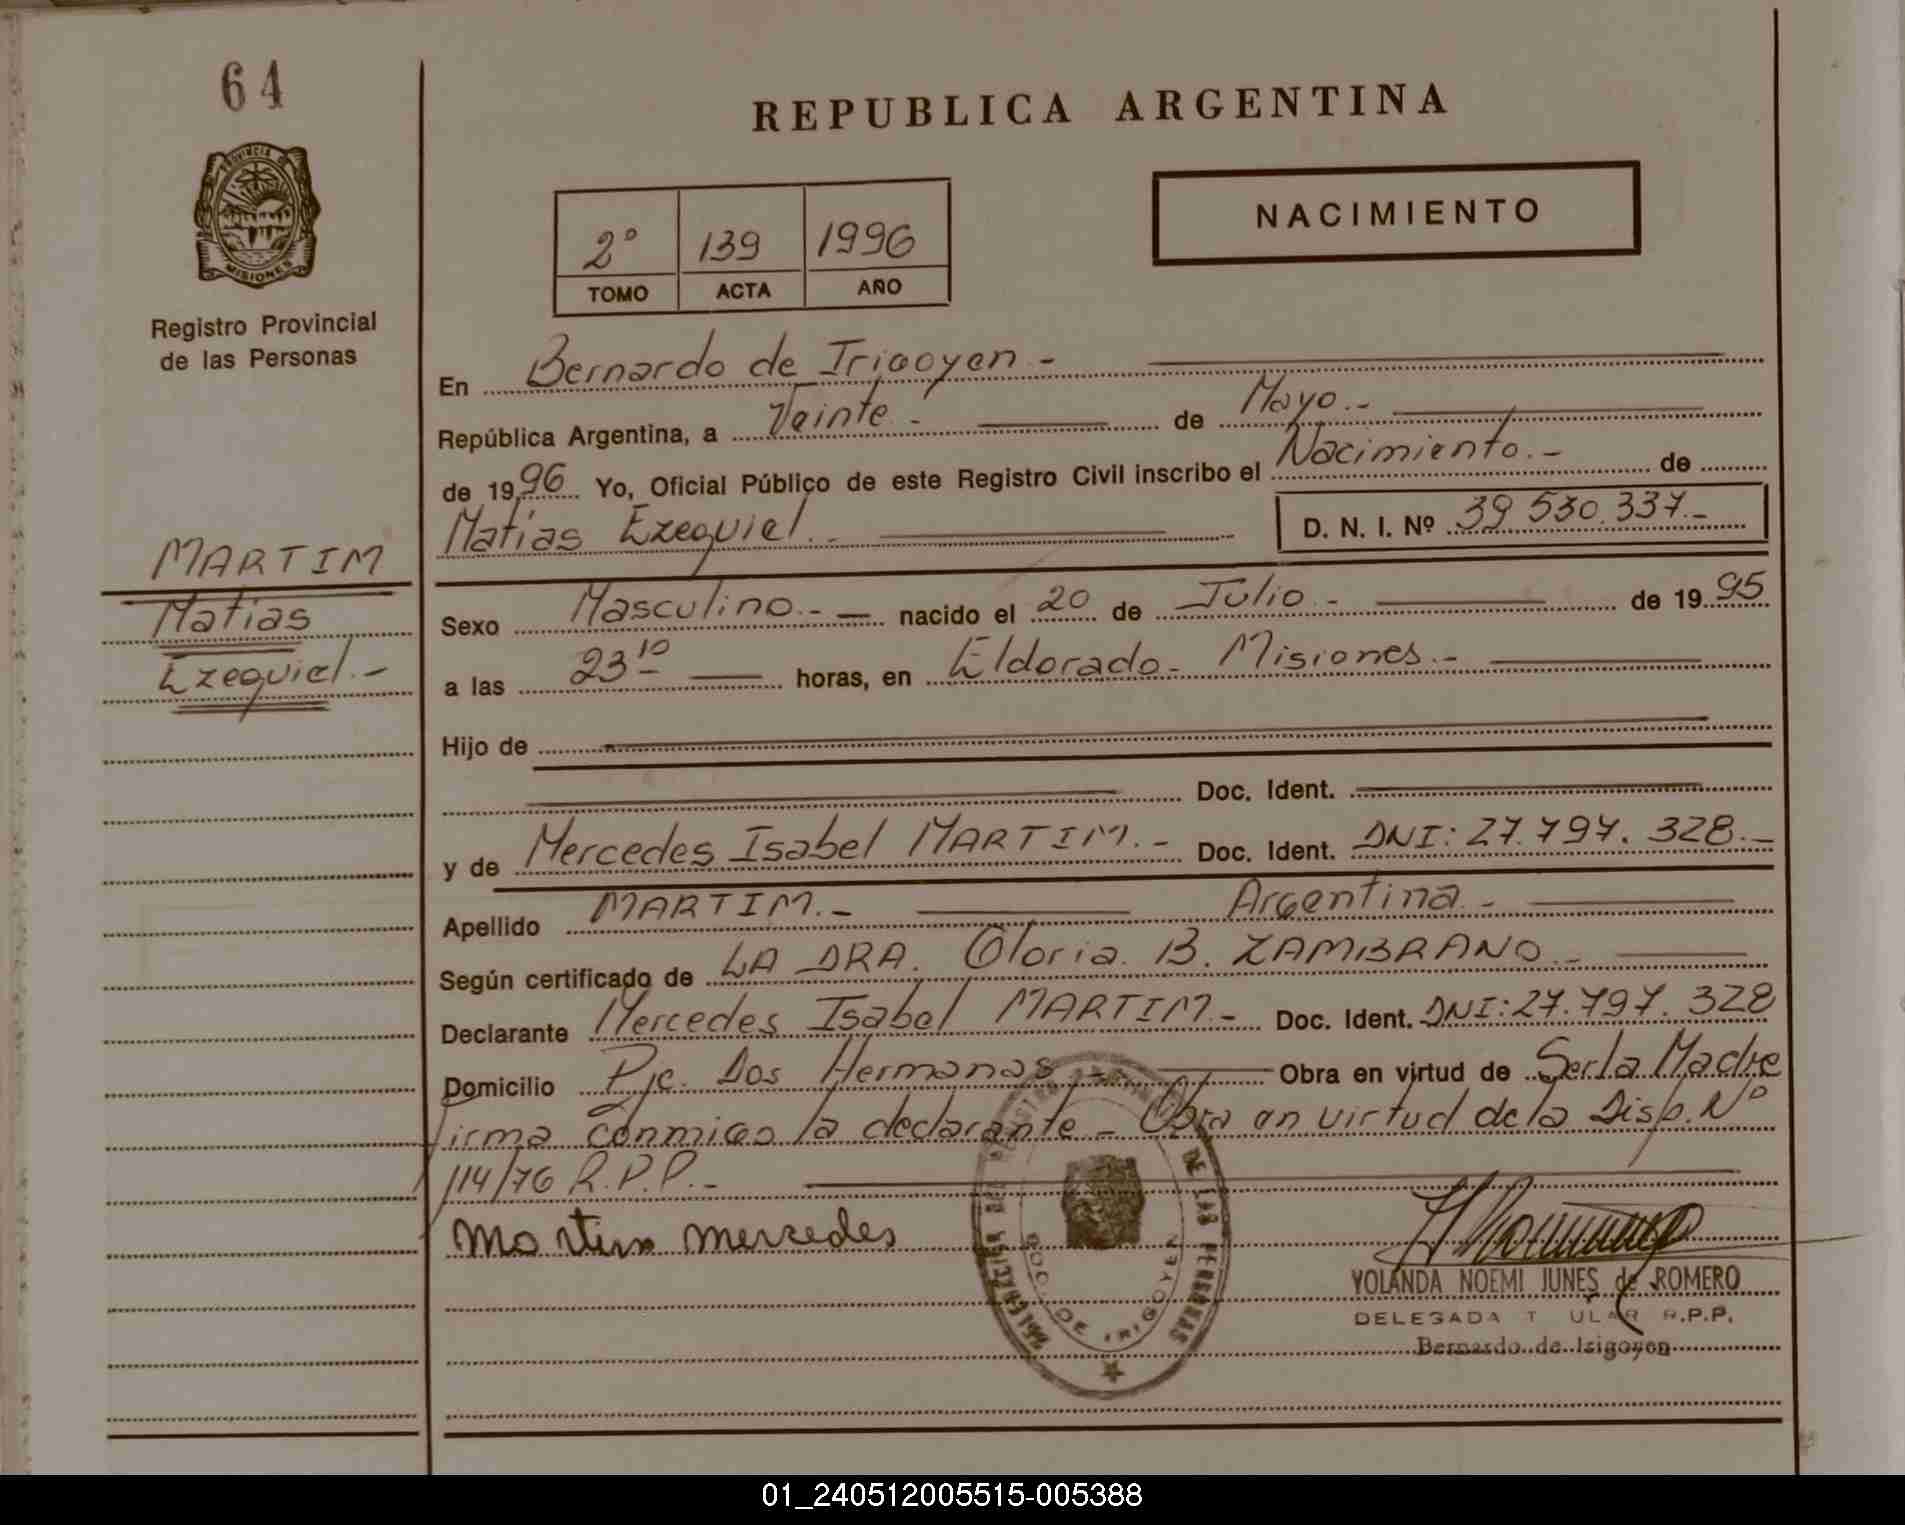 64
PROVINCIA DE
MISIONES
Registro Provincial
de las Personas
MARTIM
Matias
Ezequiel.-
REPUBLICA ARGENTINA
2° 139 1996
TOMO ACTA AÑO
NACIMIENTO
En Bernardo de Irigoyen.-
República Argentina, a Veinte.- de Mayo.-
de 1996 Yo, Oficial Público de este Registro Civil inscribo el Nacimiento.- de
Matías Ezequiel.- D. N. I. Nº 39.530.337.-
Sexo Masculino.- nacido el 20 de Julio.- de 1995
a las 23 10 horas, en Eldorado- Misiones.-
Hijo de
Doc. Ident.
y de Mercedes Isabel MARTIM.- Doc. Ident. DNI: 27.797.328.-
Apellido MARTIM.- Argentina.-
Según certificado de LA DRA. Gloria B. ZAMBRANO.-
Declarante Mercedes Isabel MARTIM.- Doc. Ident. DNI: 27.797.328
Domicilio Pje. Dos Hermanas Obra en virtud de Ser la Madre
firma conmigo la declarante - Obra en virtud de la Disp. Nº
114/76 R.P.P.-
Martim mercedes
DE LAS PERSONAS
BDO. DE IRIGOYEN
YOLANDA NOEMI JUNES de ROMERO
DELEGADA T ULAR R.P.P.
Bernardo de Irigoyen
01_240512005515-005388